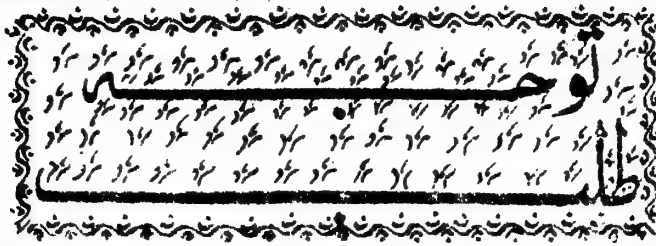 توجہ
طلب